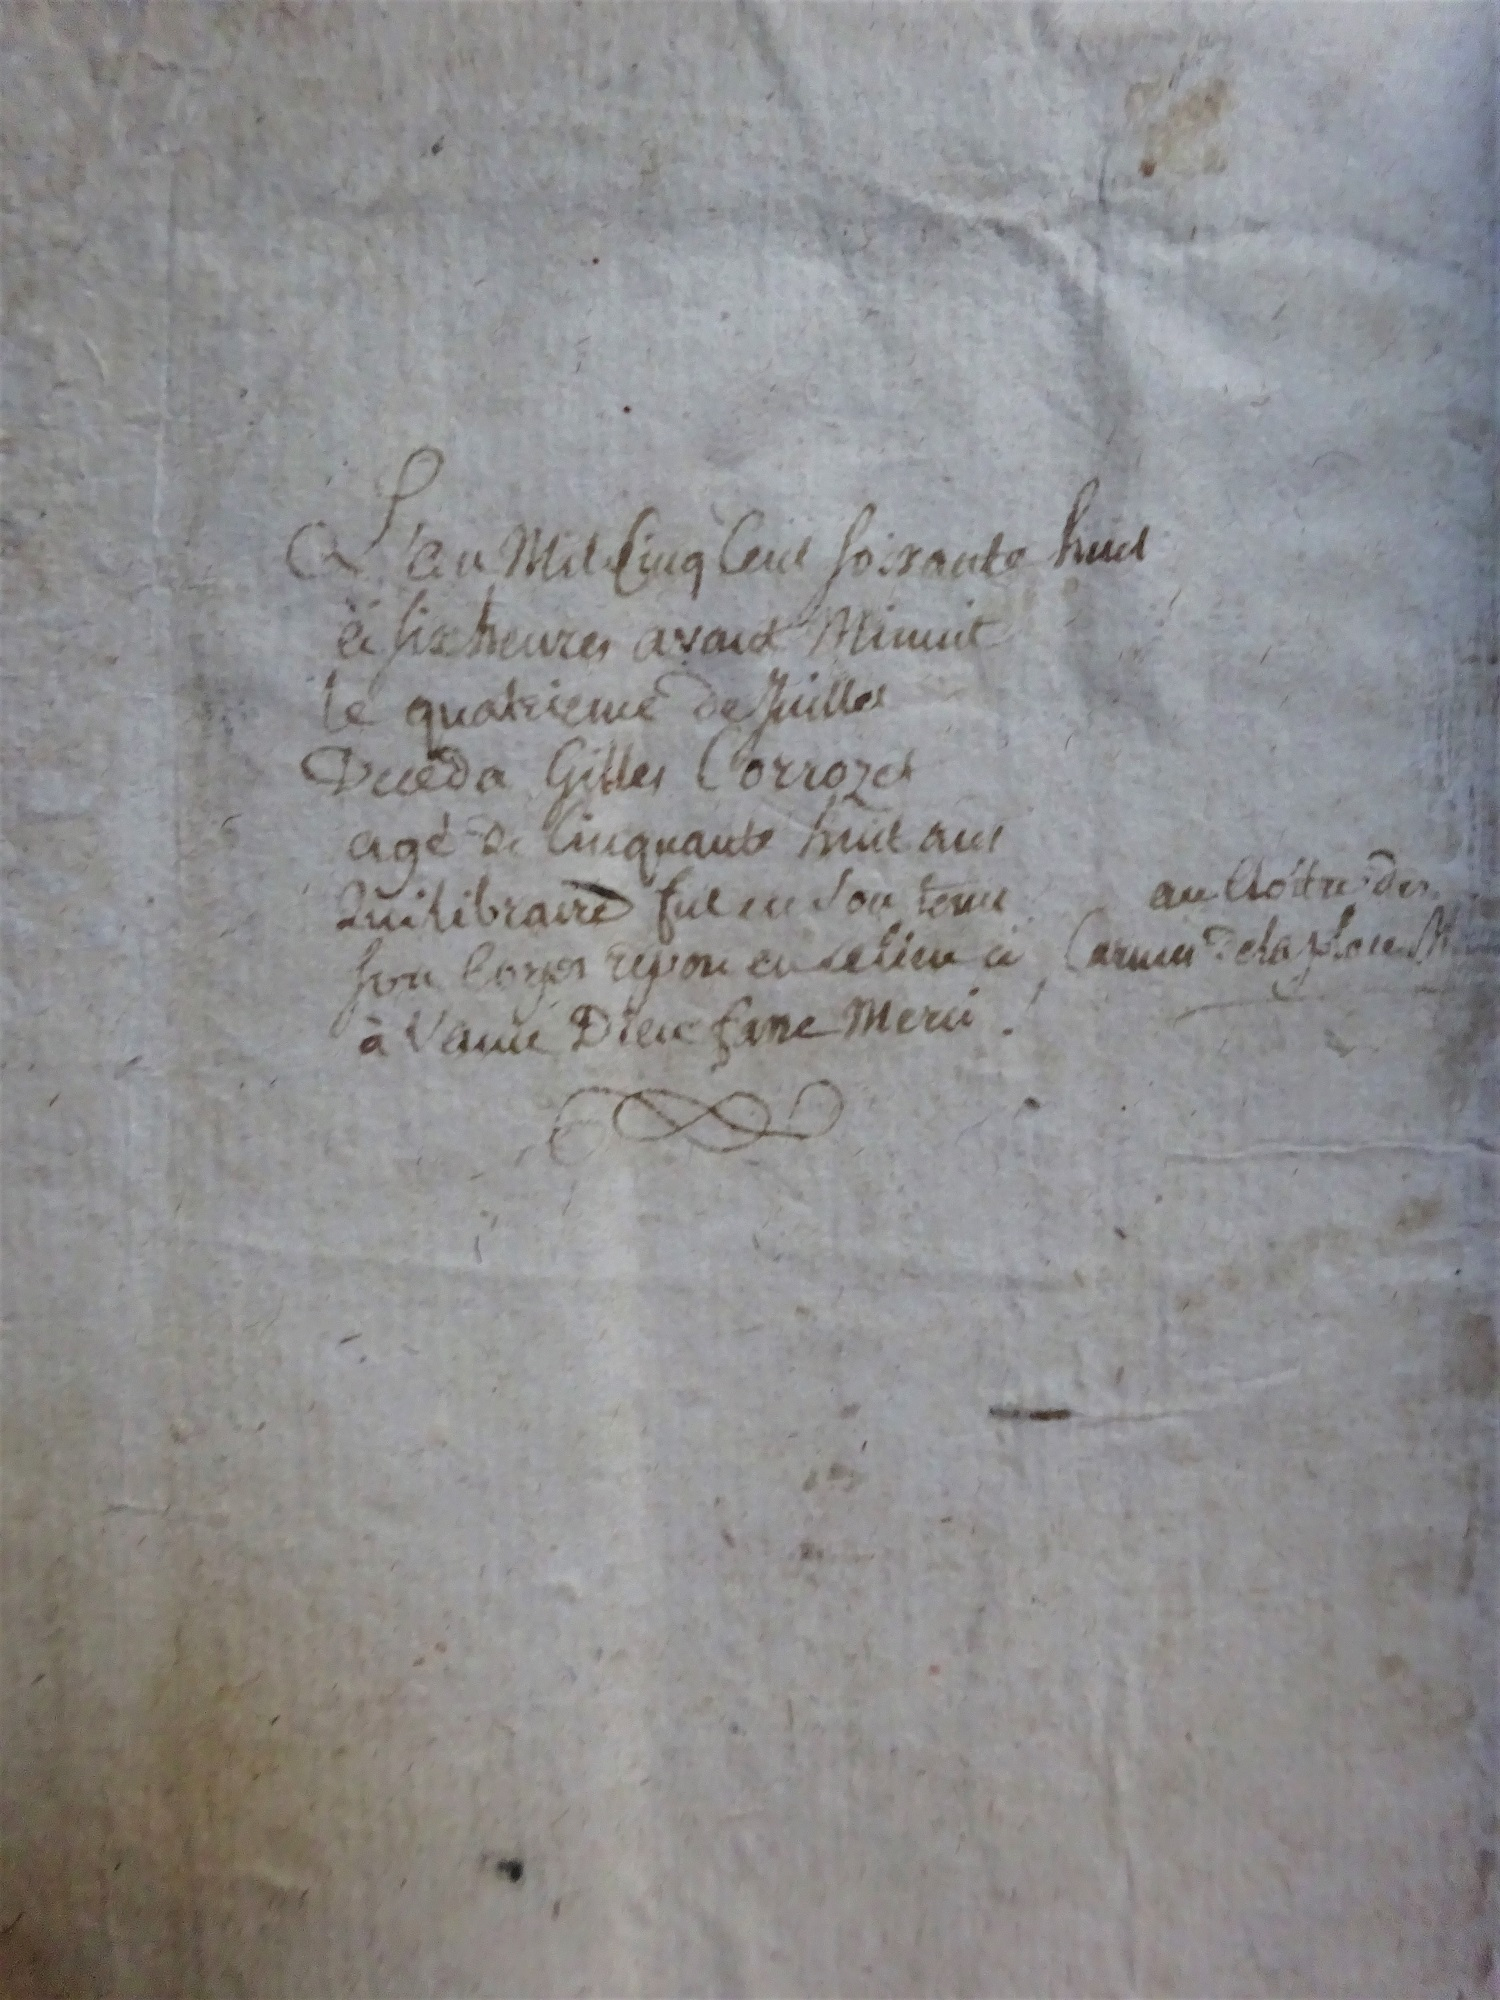 L'an Mil Cinq Cent soixante huit
à six heures avant Minuit
le quatrieme de Juillet
Deceda Gilles Corrozet
agé de Cinquante huit ans
Qui libraire fut en son tems
son Corps repose en ce lieu ci
à l'ame Dieu fasse Merci .
au Cloître des
Carmes de la place